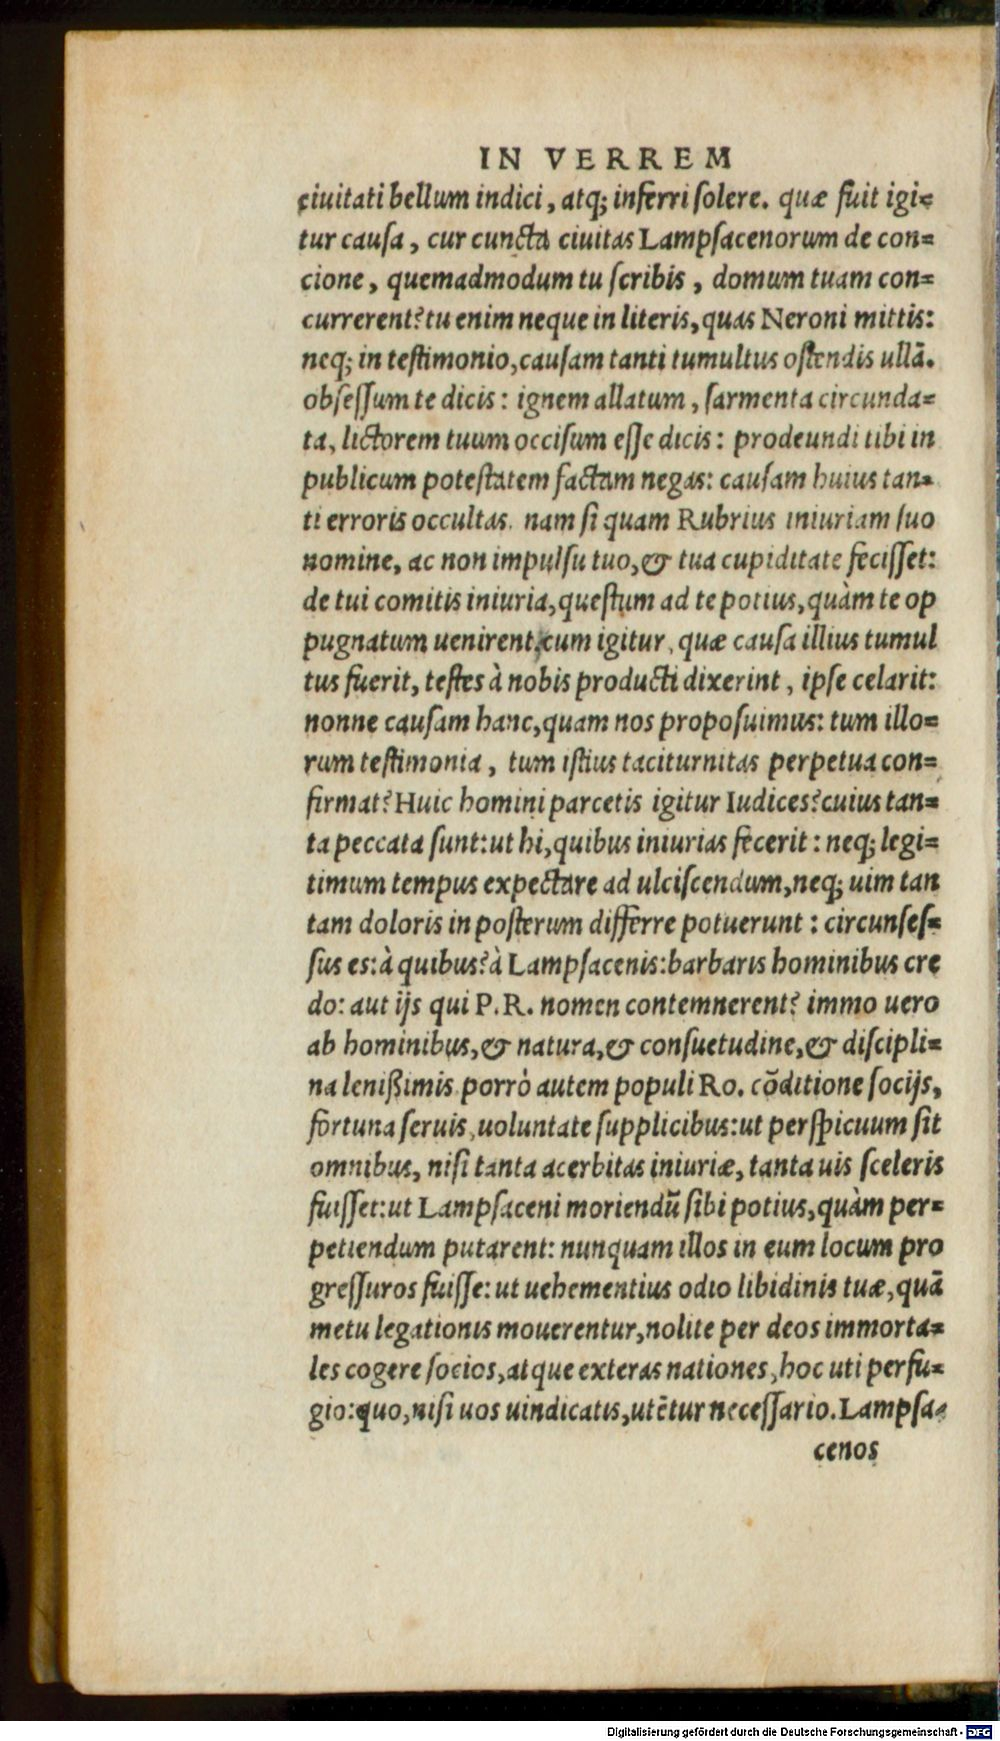 IN VERREM
ciuitati bellum indici, atq; inferri solere. quæ fuit igi=
tur causa, cur cuncta ciuitas Lampsacenorum de con=
cione, quemadmodum tu scribis, domum tuam con=
currerent? tu enim neque in literis, quas Neroni mittis:
neq; in testimonio, causam tanti tumultus ostendis ullā.
obsessum te dicis: ignem allatum, sarmenta circunda=
ta, lictorem tuum occisum esse dicis: prodeundi tibi in
publicum potestatem factam negas: causam huius tan=
ti erroris occultas. nam si quam Rubrius iniuriam suo
nomine, ac non impulsu tuo, & tua cupiditate fecisset:
de tui comitis iniuria, questum ad te potius, quàm te op
pugnatum uenirent. cum igitur, quæ causa illius tumul
tus fuerit, testes à nobis producti dixerint, ipse celarit:
nonne causam hanc, quam nos proposuimus: tum illo=
rum testimonia, tum istius taciturnitas perpetua con=
firmat? Huic homini parcetis igitur Iudices? cuius tan=
ta peccata sunt: ut hi, quibus iniurias fecerit: neq; legi=
timum tempus expectare ad ulciscendum, neq; uim tan
tam doloris in posterum differre potuerunt: circunses=
sus es: à quibus? à Lampsacenis: barbaris hominibus cre
do: aut ijs qui P.R. nomen contemnerent? immo uero
ab hominibus, & natura, & consuetudine, & discipli=
na lenißimis. porrò autem populi Ro. cōditione socijs,
fortuna seruis, uoluntate supplicibus: ut perspicuum sit
omnibus, nisi tanta acerbitas iniuriæ, tanta uis sceleris
fuisset: ut Lampsaceni moriendū sibi potius, quàm per=
petiendum putarent: nunquam illos in eum locum pro
gressuros fuisse: ut uehementius odio libidinis tuæ, quā
metu legationis mouerentur, nolite per deos immorta=
les cogere socios, atque exteras nationes, hoc uti perfu=
gio: quo, nisi uos uindicatis, utētur necessario. Lampsa=
cenos
Digitalisierung gefördert durch die Deutsche Forschungsgemeinschaft - DFG